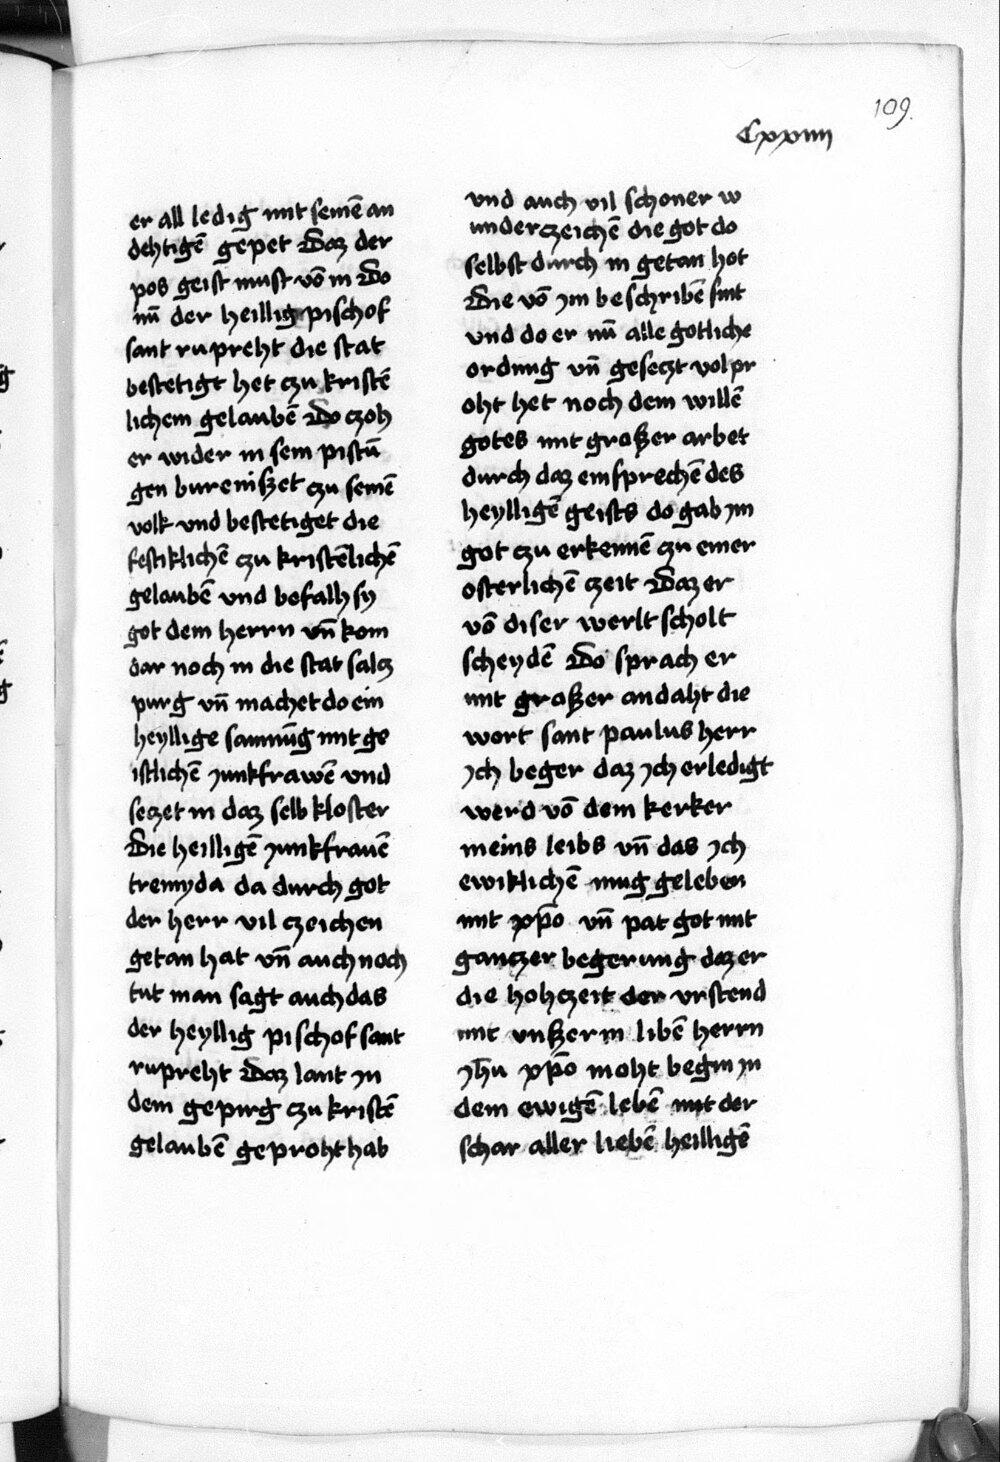 109.
Cxxiiii
er all ledig mit seinē an
dehtigē gepet Daz der
pos geist must vō in Do
nū der heillig pischof
sant rupreht die stat
bestetigt het czu kristē
lichem gelaubē Do czoh
er wider in sein pistū
gen bureniszet czu seinē
volk vnd bestetiget die
festiklichē czu kristēlichē
gelaubē vnd befalh sy
got dem herrn vn̄ kom
dar noch in die stat salcz
purg vn̄ machet do ein
heyllige samnūg mit ge
istlichē junkfrawē vnd
seczet in daz selb kloster
Die heilligē junkfrauē
tremyda da durch got
der herr vil czeichen
getan hat vn̄ auch noch
tut man sagt auch das
der heyllig pischof sant
rupreht Daz lant jn
dem gepirg czu kristē
gelaubē geproht hab
vnd auch vil schoner w
underczeichē die got do
selbst durch in getan hot
Die vō jm beschribē sint
vnd do er nū alle gotliche
ordnug vn̄ geseczt volpr
oht het noch dem willē
gotes mit groszer arbet
durch daz einsprechē des
heylligē geists do gab jm
got czu erkennē czu einer
osterlichē czeit Daz er
vō diser werlt scholt
scheydē Do sprach er
mit groszer andaht die
wort sant paulus herr
jch beger daz jch erledigt
werd vō dem kerker
meins leibs vn̄ das jch
ewiklichē mug geleben
mit xp̄o vn̄ pat got mit
ganczer begerung daz er
die hohczeit der vrstend
mit vnszerm libē herrn
jhū xp̄o moht begin jn
dem ewigē lebē mit der
schar aller liebē heilligē